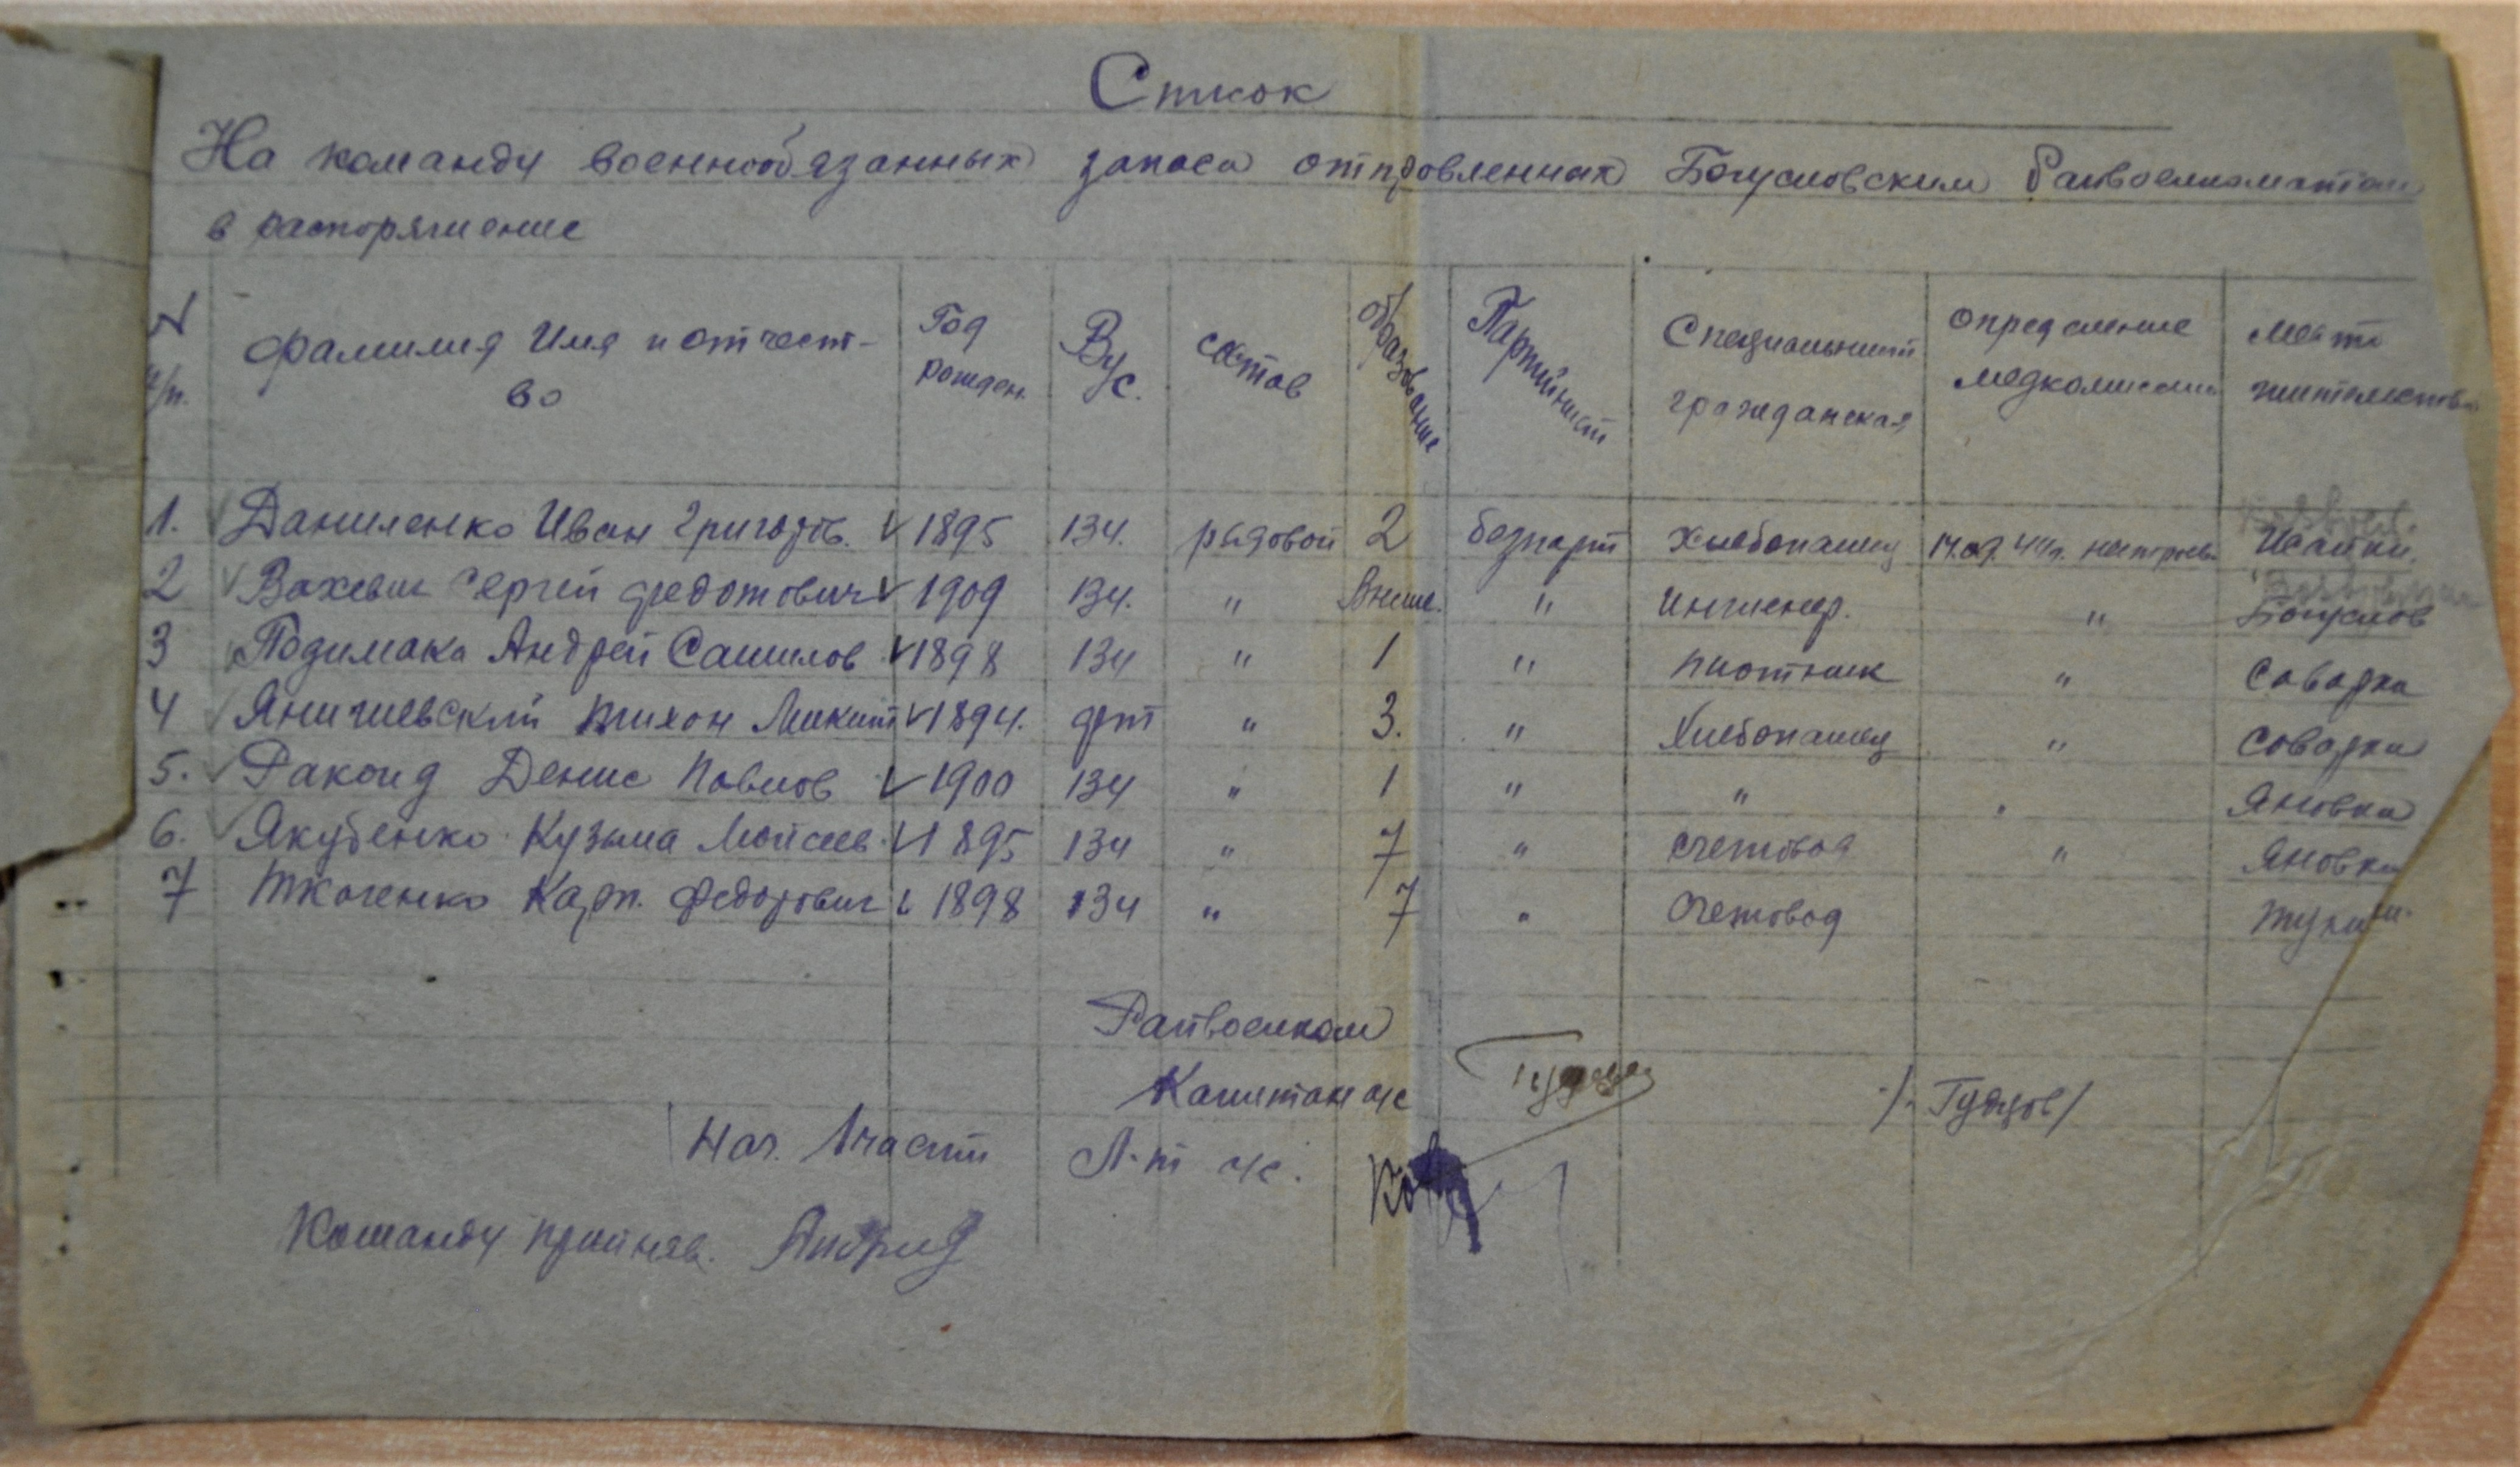 Список
На команду военнообязанных запаса отправленных Богуславским Райвоенкоматом
в распоряжение
N п/п. фамилия Имя и отчест- Год рожден. Вус. состав образование Партийност Специальност гражданская определение медкомиссии место жительства
во
1. Даниленко Иван Григорьв. 1895 134. рядовой 2 безпарт Хлебопашец 14.09.44г. нестроев. Исайки.
2 Вахевич Сергей Федотович 1909 134. " Высш. " Инженер. " Богуслов
3 Подимака Андрей Самилов 1898 134 " 1 " плотник " Саварка
4 Яничевский Тихон Микит 1894. " 3. " Хлебопашец " Соварка
5. Ракоид Денис Павлов 1900 134 " 1 " " " Яновка
6. Якубенко Кузьма Мойсеев 1895 134 " 7 " счетовод " Яновка
7 Ткоченко Карп. Федорович 1898 134 " 7 " Счетовод
Райвоенком
Капитан а/с /Гудзов/
Нач. 1 части Л-т а/с.
Команду прийняв.